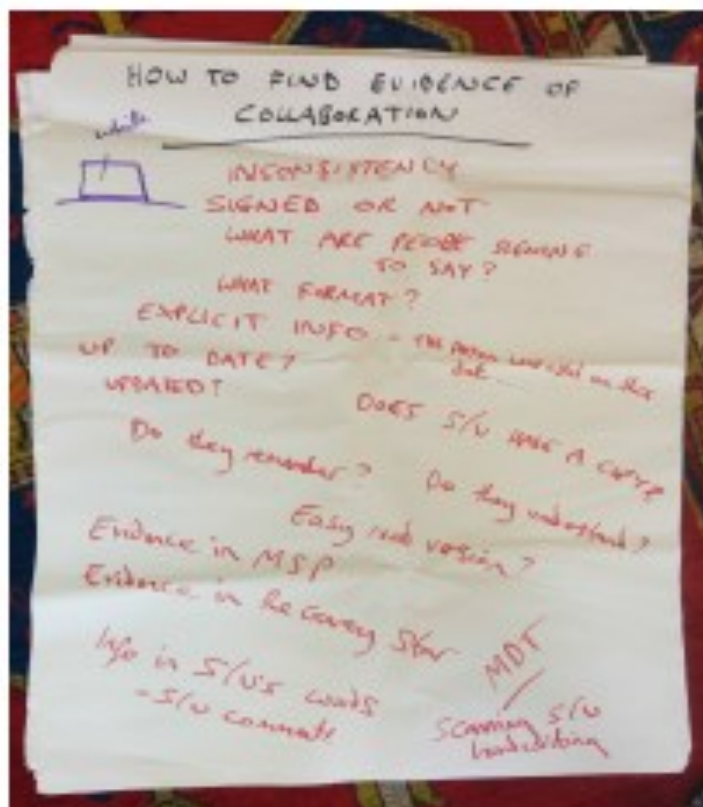 HOW TO FIND EVIDENCE OF
COLLABORATION
while
INCONSISTENCY
SIGNED OR NOT
WHAT ARE PEOPLE SIGNING
TO SAY?
WHAT FORMAT?
EXPLICIT INFO - THE PERSON on this
UP TO DATE?
UPDATED?
DOES S/U HAVE A COPY?
Do they remember?
Do they understand?
Easy read version?
Evidence in MSP
Evidence in Recovery Star
Info in S/U's words
- S/U comments
MDT
Scanning S/U
handwriting